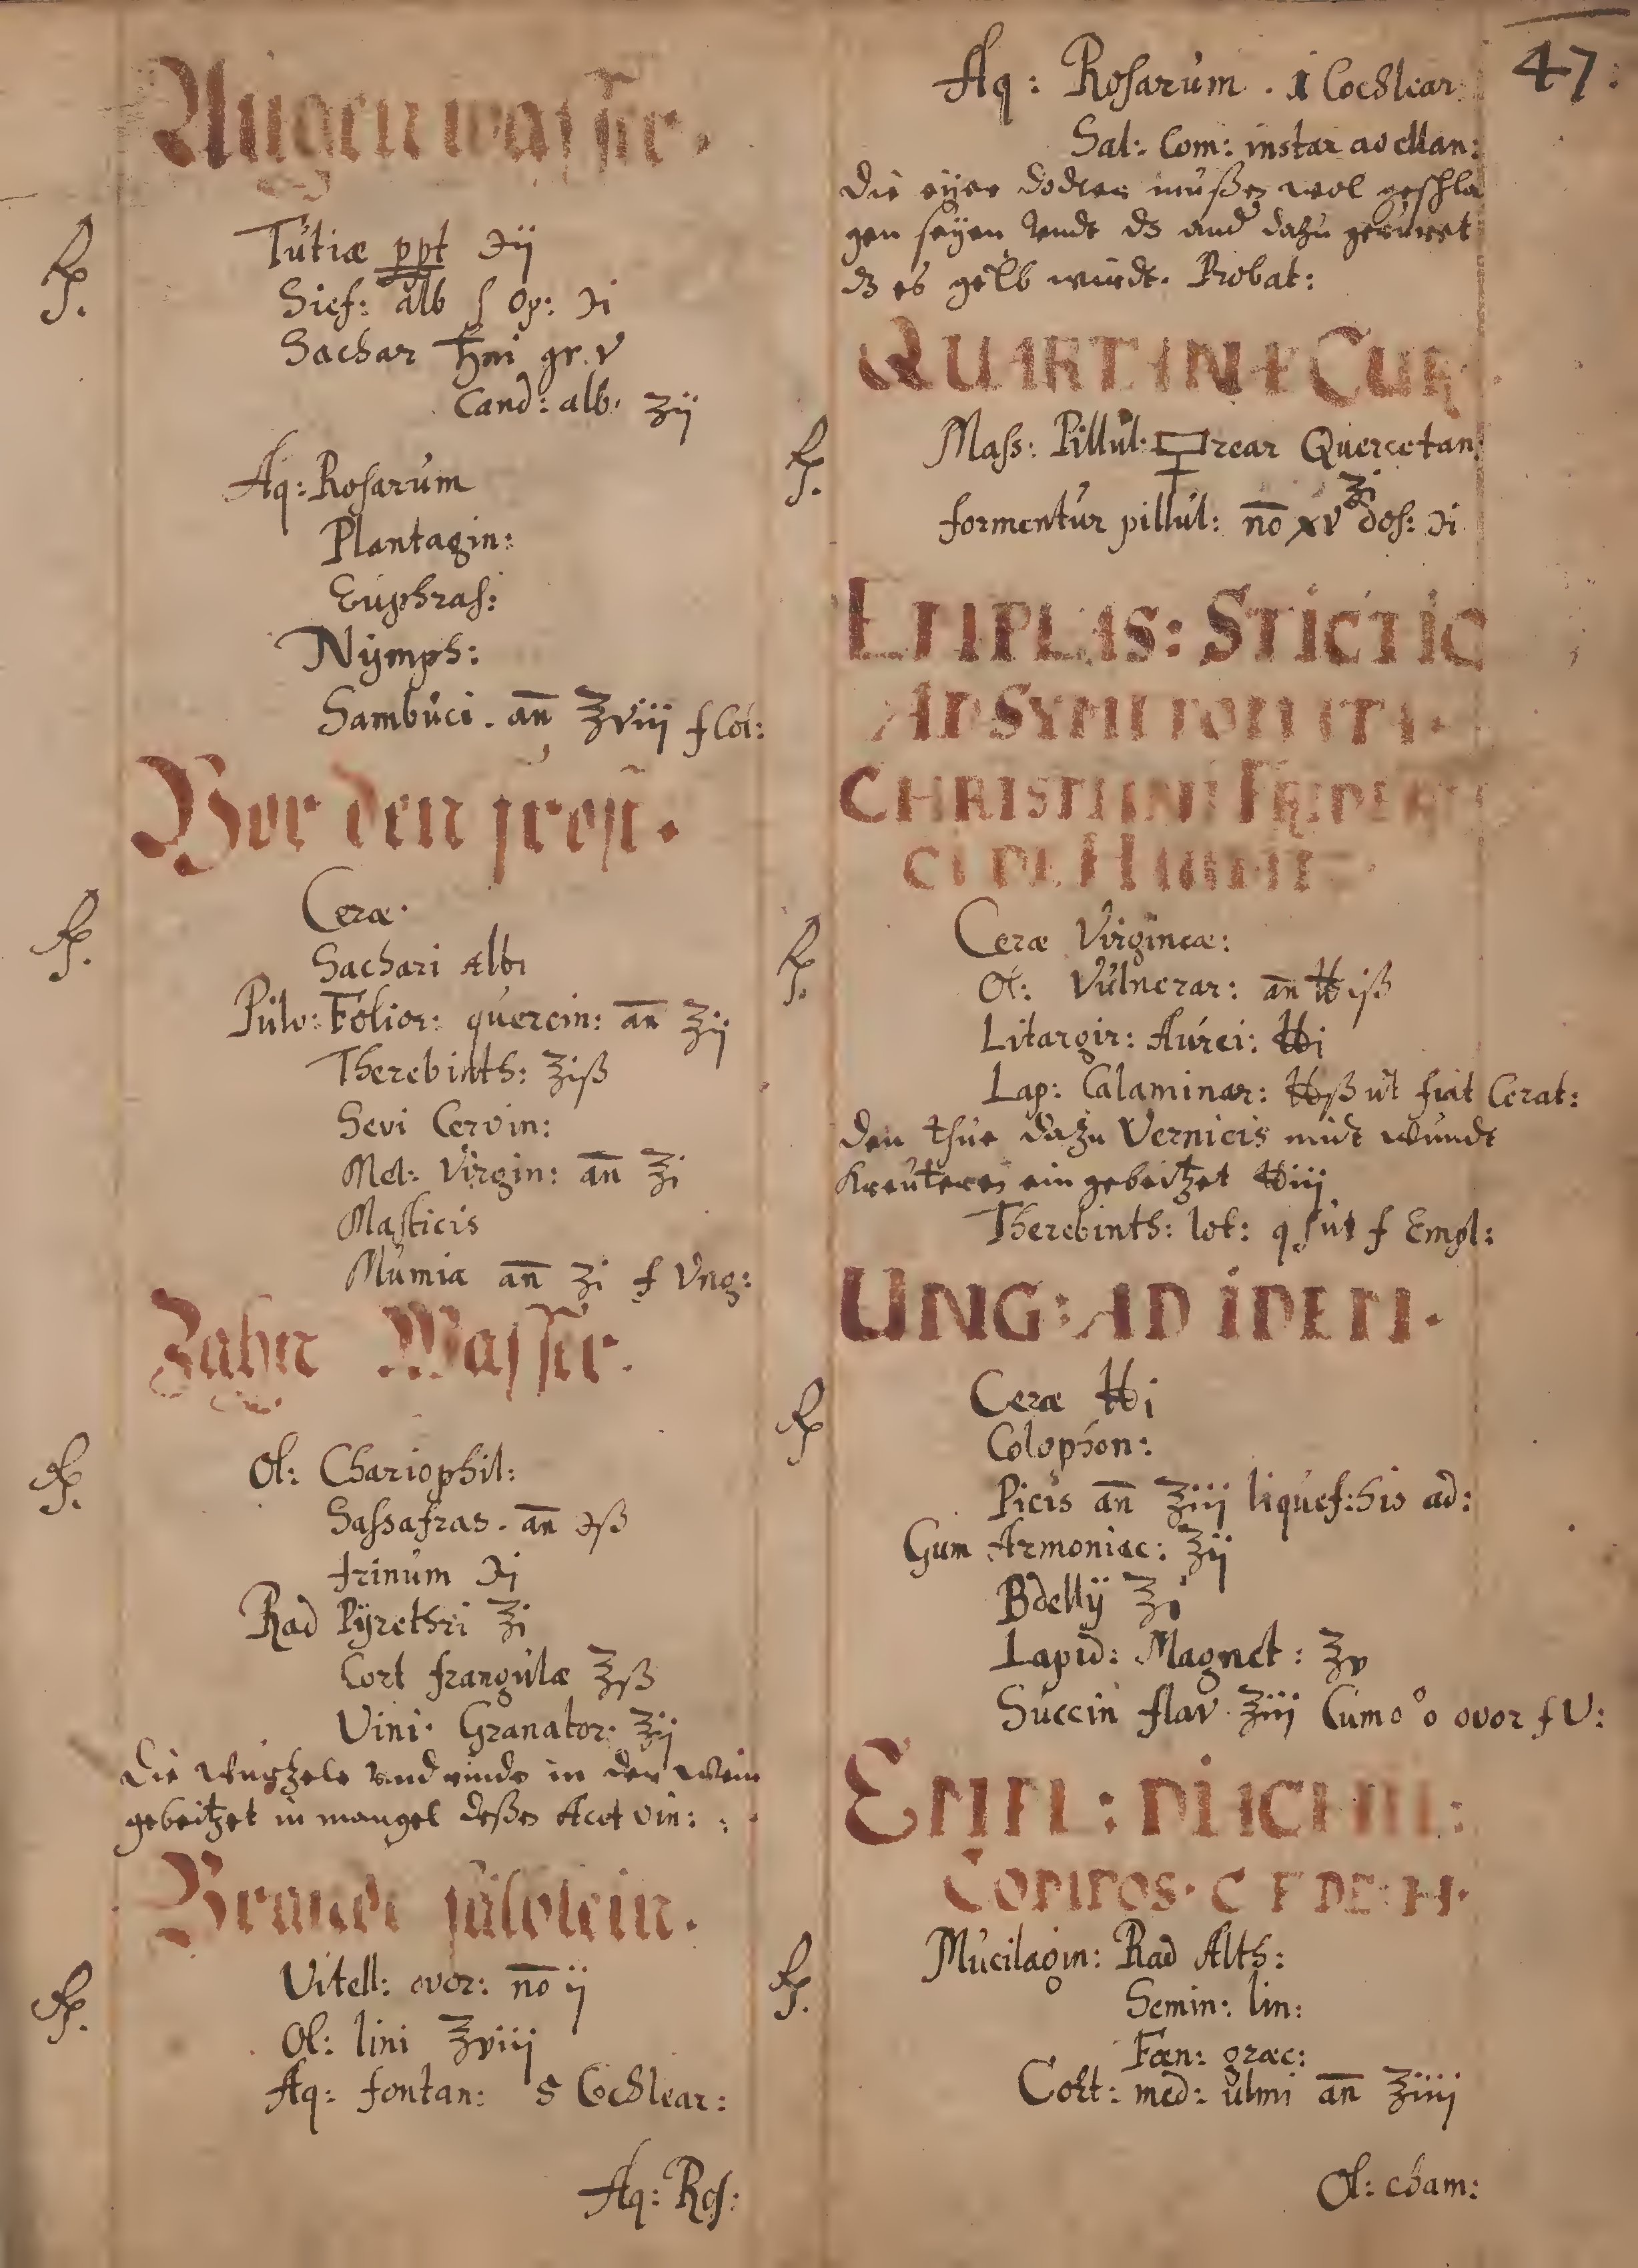 Augenwasser.
Rp.
Tutiæ ppt ℈ij
Sief: alb ſ Op: ℈i
Sachar ħni gr. v
Cand: alb. ʒij
Aq: Rosarum
Plantagin:
Euphras:
Nÿmph:
Sambuci. an̄ ℥viij f Col:
Vor den frost.
Rp.
Ceræ.
Sachari Albi
Pulv: Folior: quercin: an̄ ℥ij
Therebinth: ℥iß
Sevi Cervin:
Mel: Virgin: an̄ ℥i
Masticis
Mumia an̄ ʒi f Ung:
Zahn Wasser.
Rp.
Ol: Chariophil:
Sassafras. an̄ ℈ß
trinum ℈i
Rad Pÿrethri ℥i
Cort frangulæ ℥ß
Vini. Granator: ℥ij
Die wurtzele vnd rinde in den Wein
gebeitzet in mangel deßen Acet vin:
Brandt sälblein.
Rp.
Vitell: ovor: no̅ ij
Ol: lini ℥viij
Aq: fontan: 8 Cochlear:
Aq: Ros:
47:
Aq: Rosarum. 1 Cochlear
Sal: Com: instar avellan:
Die eÿer dodter müßen wol geschla
gen seÿen vndt dz and dazu gerüret
dz es gelb würdt. Probat:
QUARTANÆ CUR
Rp.
Mass: Pillul: rear Quercetan:
ʒi
formentur pillul: no̅ xv dos: ℈i
EMPLAS: STICTIC
AD SYMPTOMATA.
CHRISTIANI FRIDERI
CI DE
Rp.
Ceræ Virgineæ:
Ol: Vulnerar: an̄ ℔iß
Litargir: Aurei: ℔i
Lap: Calaminar: ℔ß ut fiat Cerat:
den thue dazu Vernicis midt wundt
kreuteren ein gebeitzet ℔iij
Therebinth: lot: q s ut f Empl:
UNG: AD IDEM.
Rp
Ceræ ℔i
Colophon:
Picis an̄ ℥iij liquef: his ad:
Gum Armoniac: ℥ij
Bdellÿ ℥i
Lapid: Magnet: ℥v
Succin flav. ℥iij Cum o°o ovor f U:
EMPL: DIACHIL:
COMPOS. C F DE: H.
Rp.
Mucilagin: Rad Alth:
Semin: lin:
Fœn: græc:
Cort: med: ulmi an̄ ℥iiij
Ol: cham: